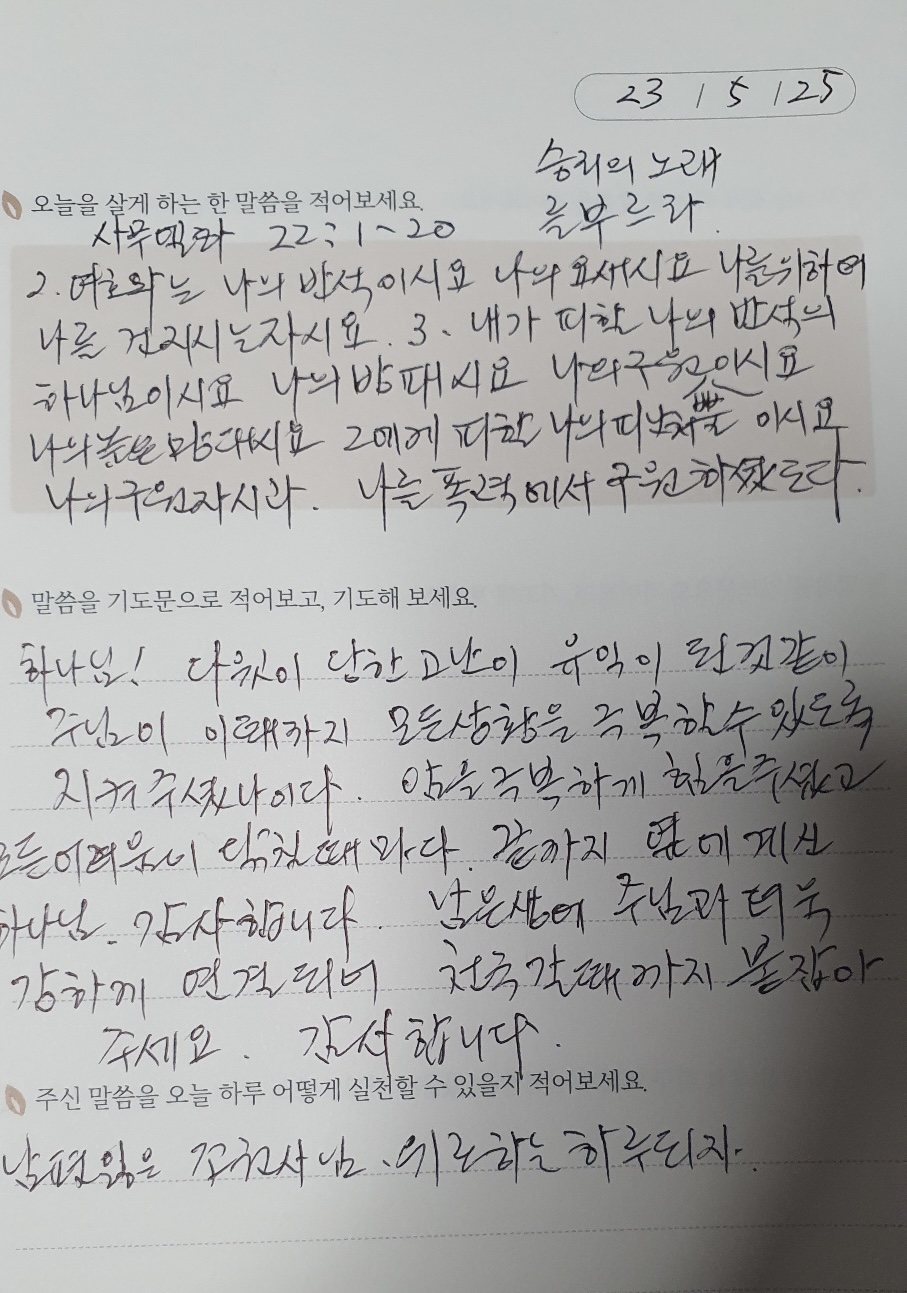 23 / 5 / 25
승리의 노래
를 부르라.
오늘을 살게 하는 한 말씀을 적어보세요.
사무엘하 22:1~20
2. 여호와는 나의 반석이시요 나의 요새시요 나를 위하여
나를 건지시는자시요. 3. 내가 피할 나의 반석의
하나님이시요 나의 방패시요 나의 구원의
뿔 이시요
나의 높은 망대시요 그에게 피할 나의 피난처 이시요
나의 구원자시라. 나를 폭력에서 구원하셨도다.
말씀을 기도문으로 적어보고, 기도해 보세요.
하나님! 다윗이 당한 고난이 유익이 된것같이
주님이 이때까지 모든상황을 극복할수있도록
지켜주셨나이다. 암을 극복하게 힘을주셨고
모든어려움이 닥칠때마다. 끝까지 옆에 계신
하나님. 감사합니다. 남은생애 주님과 더욱
강하게 연결되어 천국갈때까지 붙잡아
주세요. 감사합니다.
주신 말씀을 오늘 하루 어떻게 실천할 수 있을지 적어보세요.
남편잃은 집사님. 위로하는 하루되자.